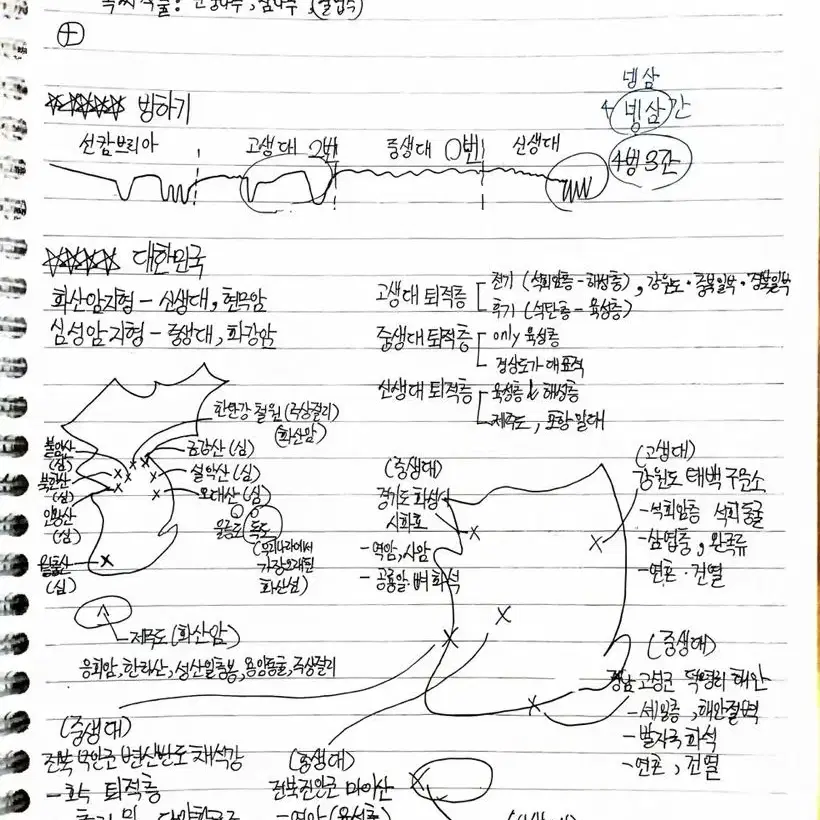 ⊕
☆☆☆☆☆ 빙하기
넹삼
넹삼간
4빙3간
선캄브리아
고생대 2번
중생대 0번
신생대
☆☆☆☆☆ 대한민국
화산암지형 - 신생대, 현무암
심성암지형 - 중생대, 화강암
고생대 퇴적층
전기 (석회암층 - 해성층), 강원도·충북일부·경북일부
후기 (석탄층 - 육성층)
중생대 퇴적층
only 육성층
경상도가 대표적
신생대 퇴적층
육성층 & 해성층
제주도, 포항 일대
한탄강 철원 (주상절리)
(화산암)
불암산
(심)
북한산
(심)
인왕산
(심)
월출산
(심)
금강산 (심)
설악산 (심)
오대산 (심)
울릉도 독도
(우리나라에서
가장오래된
화산섬)
제주도 (화산암)
응회암, 한라산, 성산일출봉, 용암동굴, 주상절리
(중생대)
경기도 화성시
시화호
- 역암, 사암
- 공룡알·뼈 화석
(고생대)
강원도 태백 구문소
- 석회암층 석회동굴
- 삼엽충, 완족류
- 연흔·건열
(중생대)
경남 고성군 덕명리 해안
- 셰일층, 해안절벽
- 발자국 화석
- 연흔, 건열
(중생대)
전북 부안군 변산반도 채석강
- 호수 퇴적층
(중생대)
전북진안군 마이산
- 역암 (육성층)